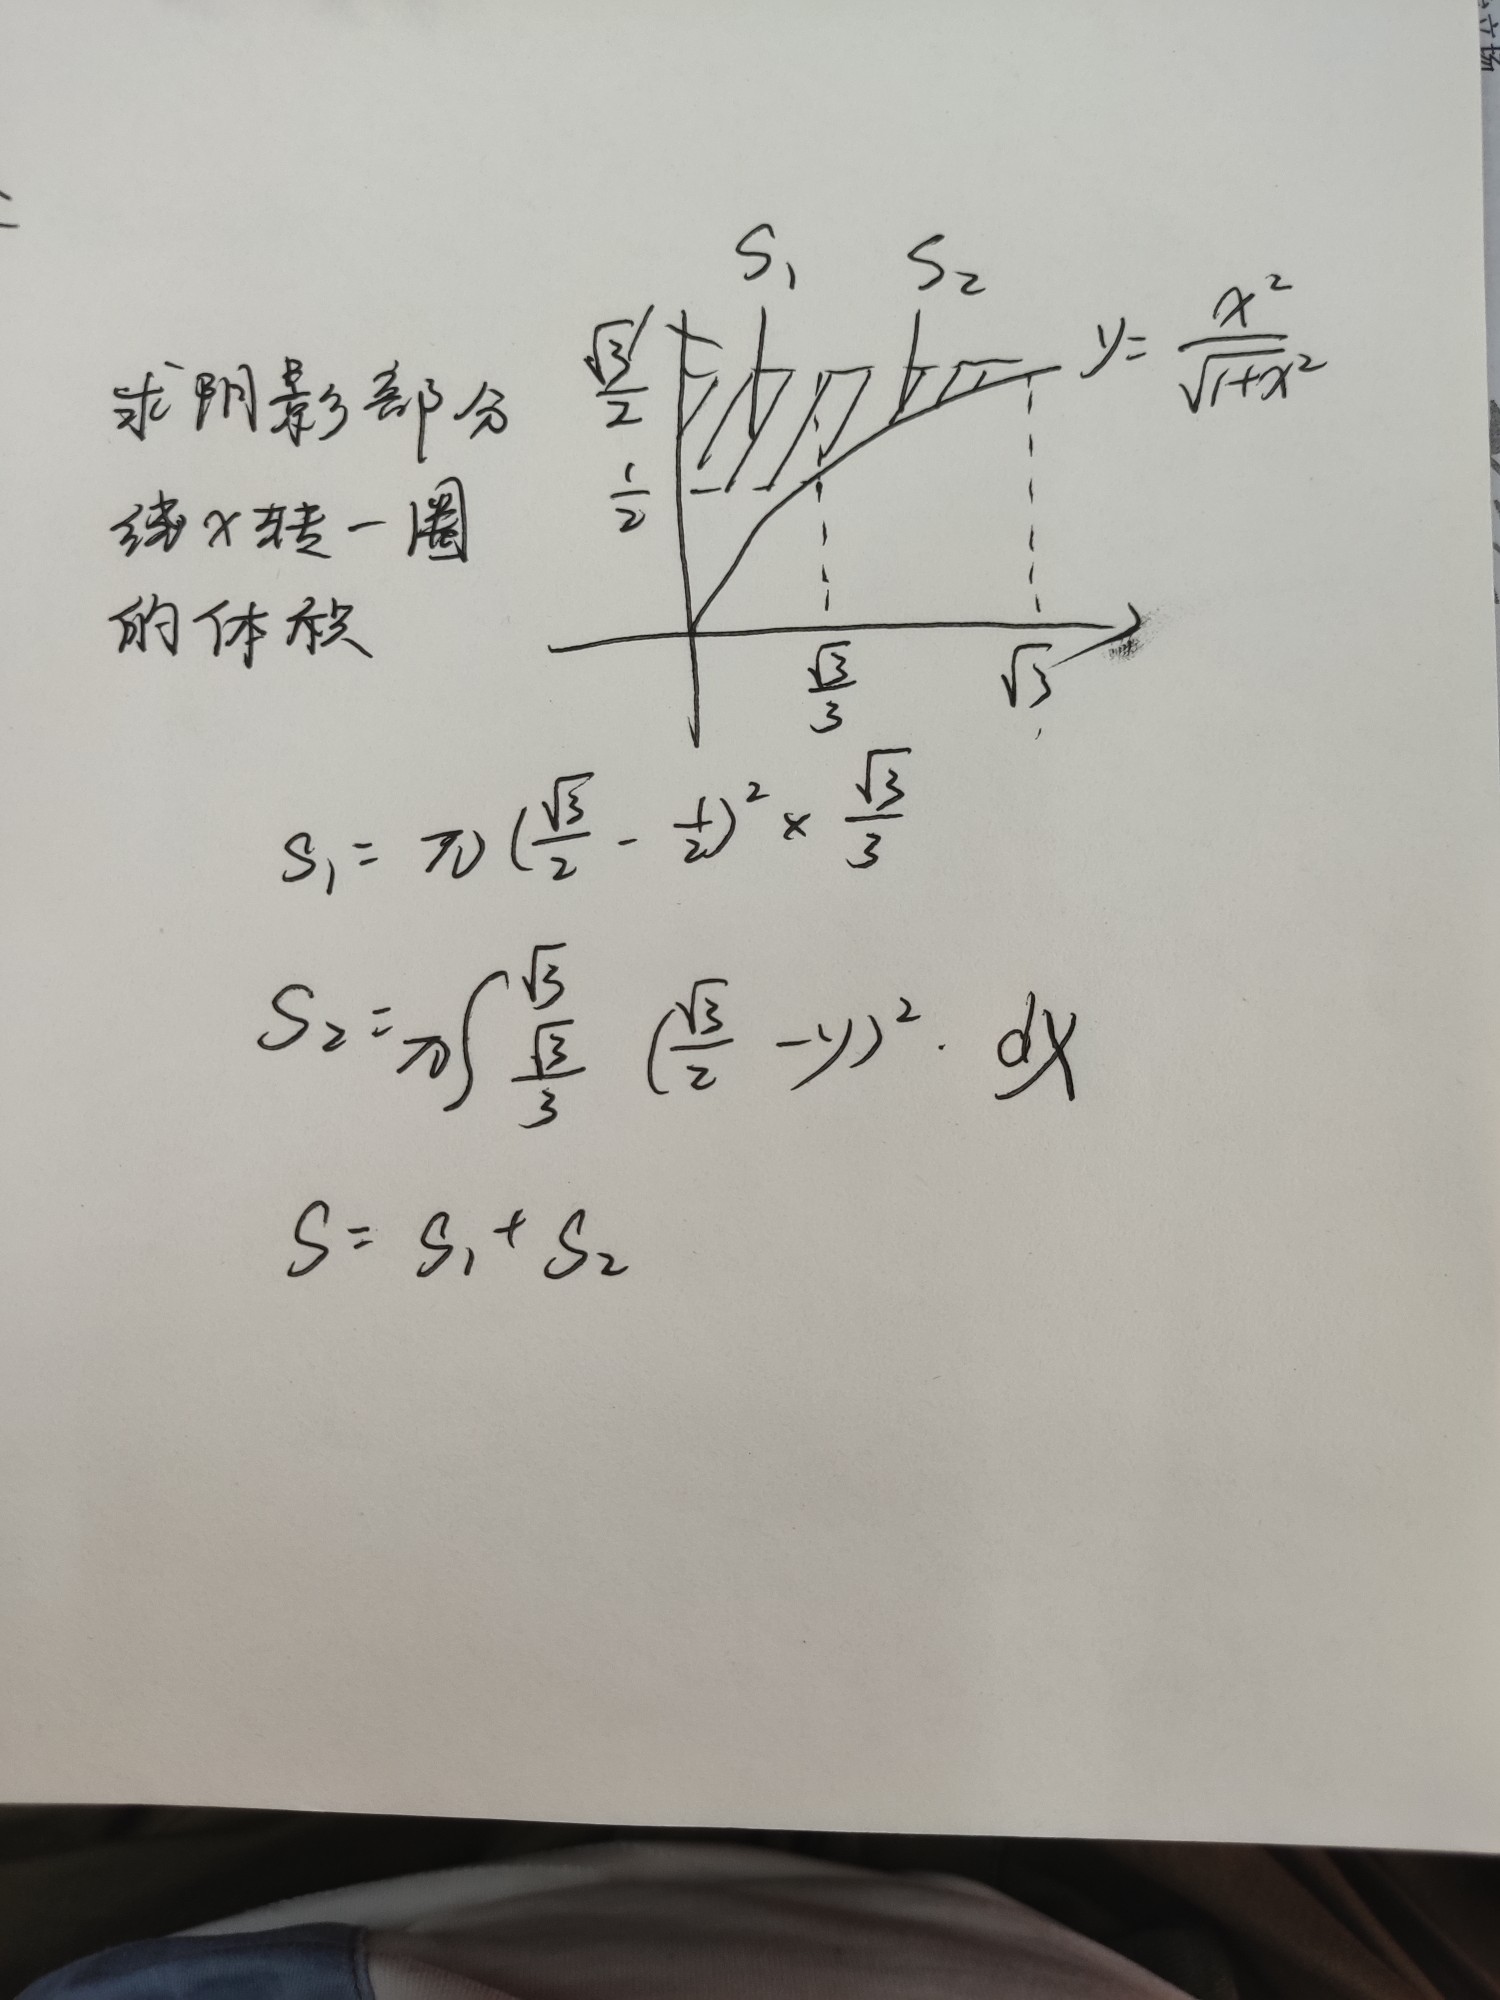 求阴影部分
绕x转一圈
的体积
S₁ S₂
√3/2
1/2
y = x²/√(1+x²)
√3/3 √3
S₁ = π(√3/2 - 1/2)² × √3/3
S₂ = π∫_{√3/3}^{√3} (√3/2 - y)² · dx
S = S₁ + S₂